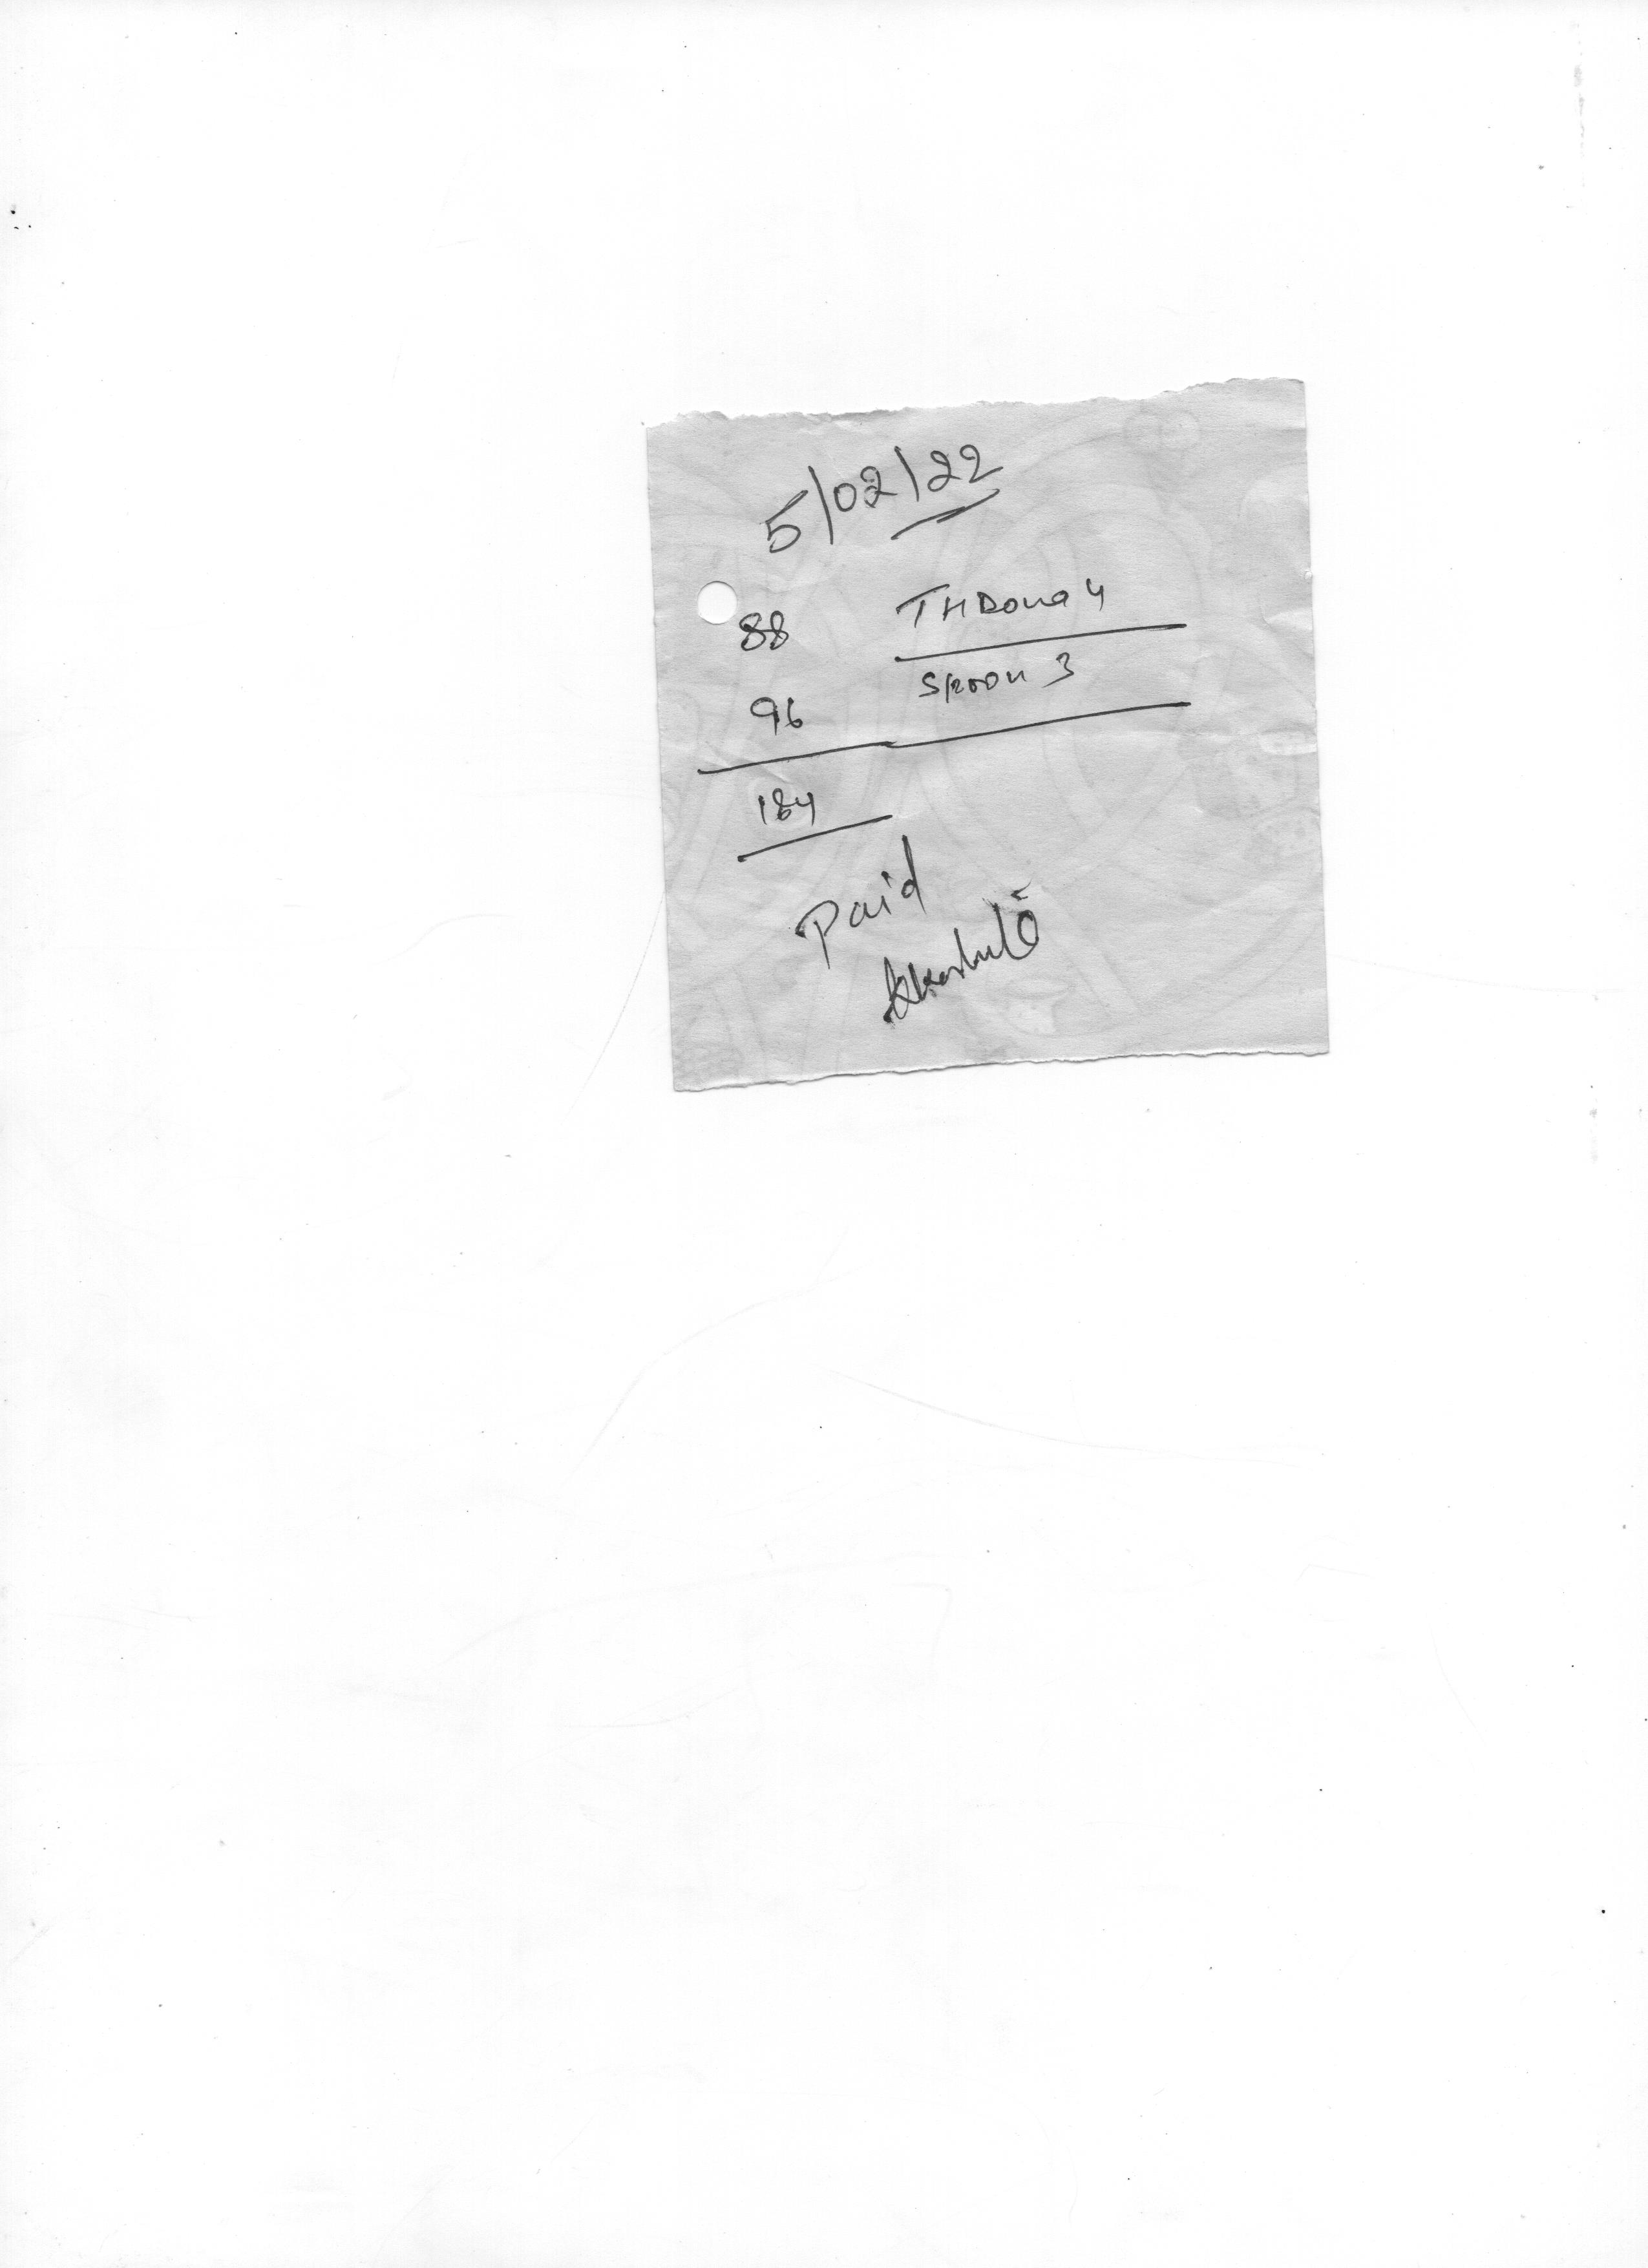 5/02/22
88 THDona 4
96 Spoon 3
184
Paid